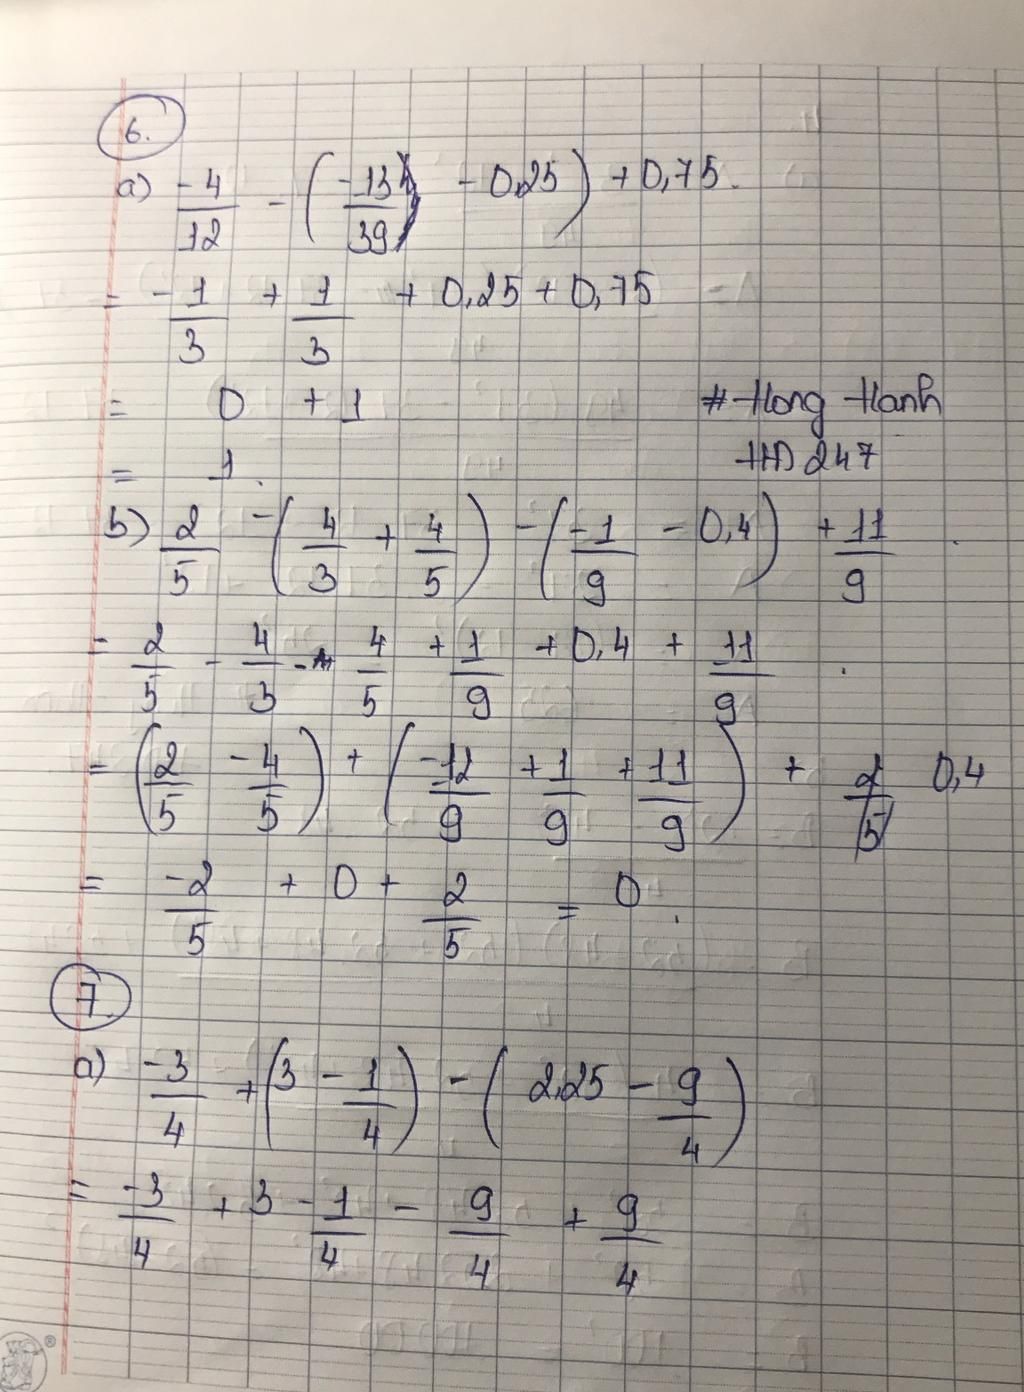 6.
a) -4/12 - (-13/39 - 0,25) + 0,75.
= -1/3 + 1/3 + 0,25 + 0,75
= 0 + 1
# Hong Hanh
= 1.
HD 247
b) 2/5 - (4/3 + 4/5) - (-1/9 - 0,4) + 11/9.
= 2/5 - 4/3 - 4/5 + 1/9 + 0,4 + 11/9.
= (2/5 - 4/5) + (-12/9 + 1/9 + 11/9) + 2/5 0,4
= -2/5 + 0 + 2/5 = 0.
7.
a) -3/4 + (3 - 1/4) - (2,25 - 9/4)
= -3/4 + 3 - 1/4 - 9/4 + 9/4